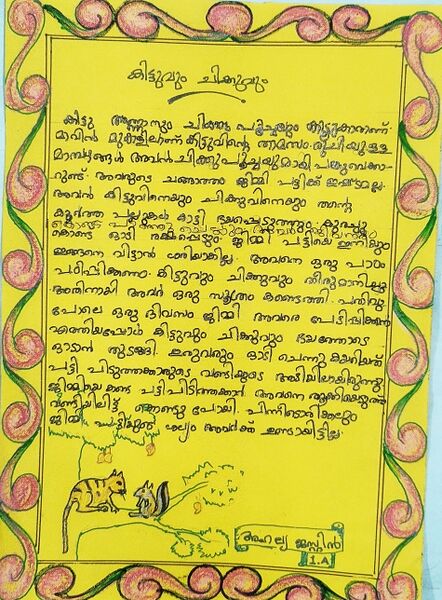 കിട്ടുവും ചിക്കുവും
കിട്ടു അണ്ണാനും ചിക്കു പൂച്ചയും കൂട്ടുകാരാണ്
മാവിൻ മുകളിലാണ് കിട്ടുവിന്റെ താമസം. രുചിയുള്ള
മാമ്പഴങ്ങൾ അവൻ ചിക്കു പൂച്ചയുമായി പങ്കുവെക്കാ
റുണ്ട് അവരുടെ ചങ്ങാത്തം ജിമ്മി പട്ടിക്ക് ഇഷ്ടമല്ല.
അവൻ കിട്ടുവിനെയും ചിക്കുവിനെയും തന്റെ
കൂർത്ത പല്ലുകൾ കാട്ടി ഭയപ്പെടുത്തും.
കൊണ്ട് ഓടി രക്ഷപ്പെടും. ജിമ്മി പട്ടിയെ ഇനിയും
ഇങ്ങനെ വിട്ടാൽ ശരിയാകില്ല. അവനെ ഒരു പാഠം
പഠിപ്പിക്കണം. കിട്ടുവും ചിക്കുവും തീരുമാനിച്ചു
അതിനായി അവർ ഒരു സൂത്രം കണ്ടെത്തി. പതിവു
പോലെ ഒരു ദിവസം ജിമ്മി അവരെ പേടിപ്പിക്കാൻ
എത്തിയപ്പോൾ കിട്ടുവും ചിക്കുവും ഭയത്തോടെ
ഓടാൻ തുടങ്ങി. ഇരുവരും ഓടി ചെന്നു കയറിയത്
പട്ടി പിടുത്തക്കാരുടെ വണ്ടിയുടെ അടിയിലായിരുന്നു
ജിമ്മിയെ കണ്ട പട്ടിപിടിത്തക്കാർ അവനെ തൂക്കിയെടുത്ത്
വണ്ടിയിലിട്ട് കൊണ്ടു പോയി. പിന്നീടൊരിക്കലും
ജിമ്മി പട്ടിയുടെ ശല്യം അവർക്ക് ഉണ്ടായിട്ടില്ല.
അഹല്യ ജസ്റ്റിൻ
1.A